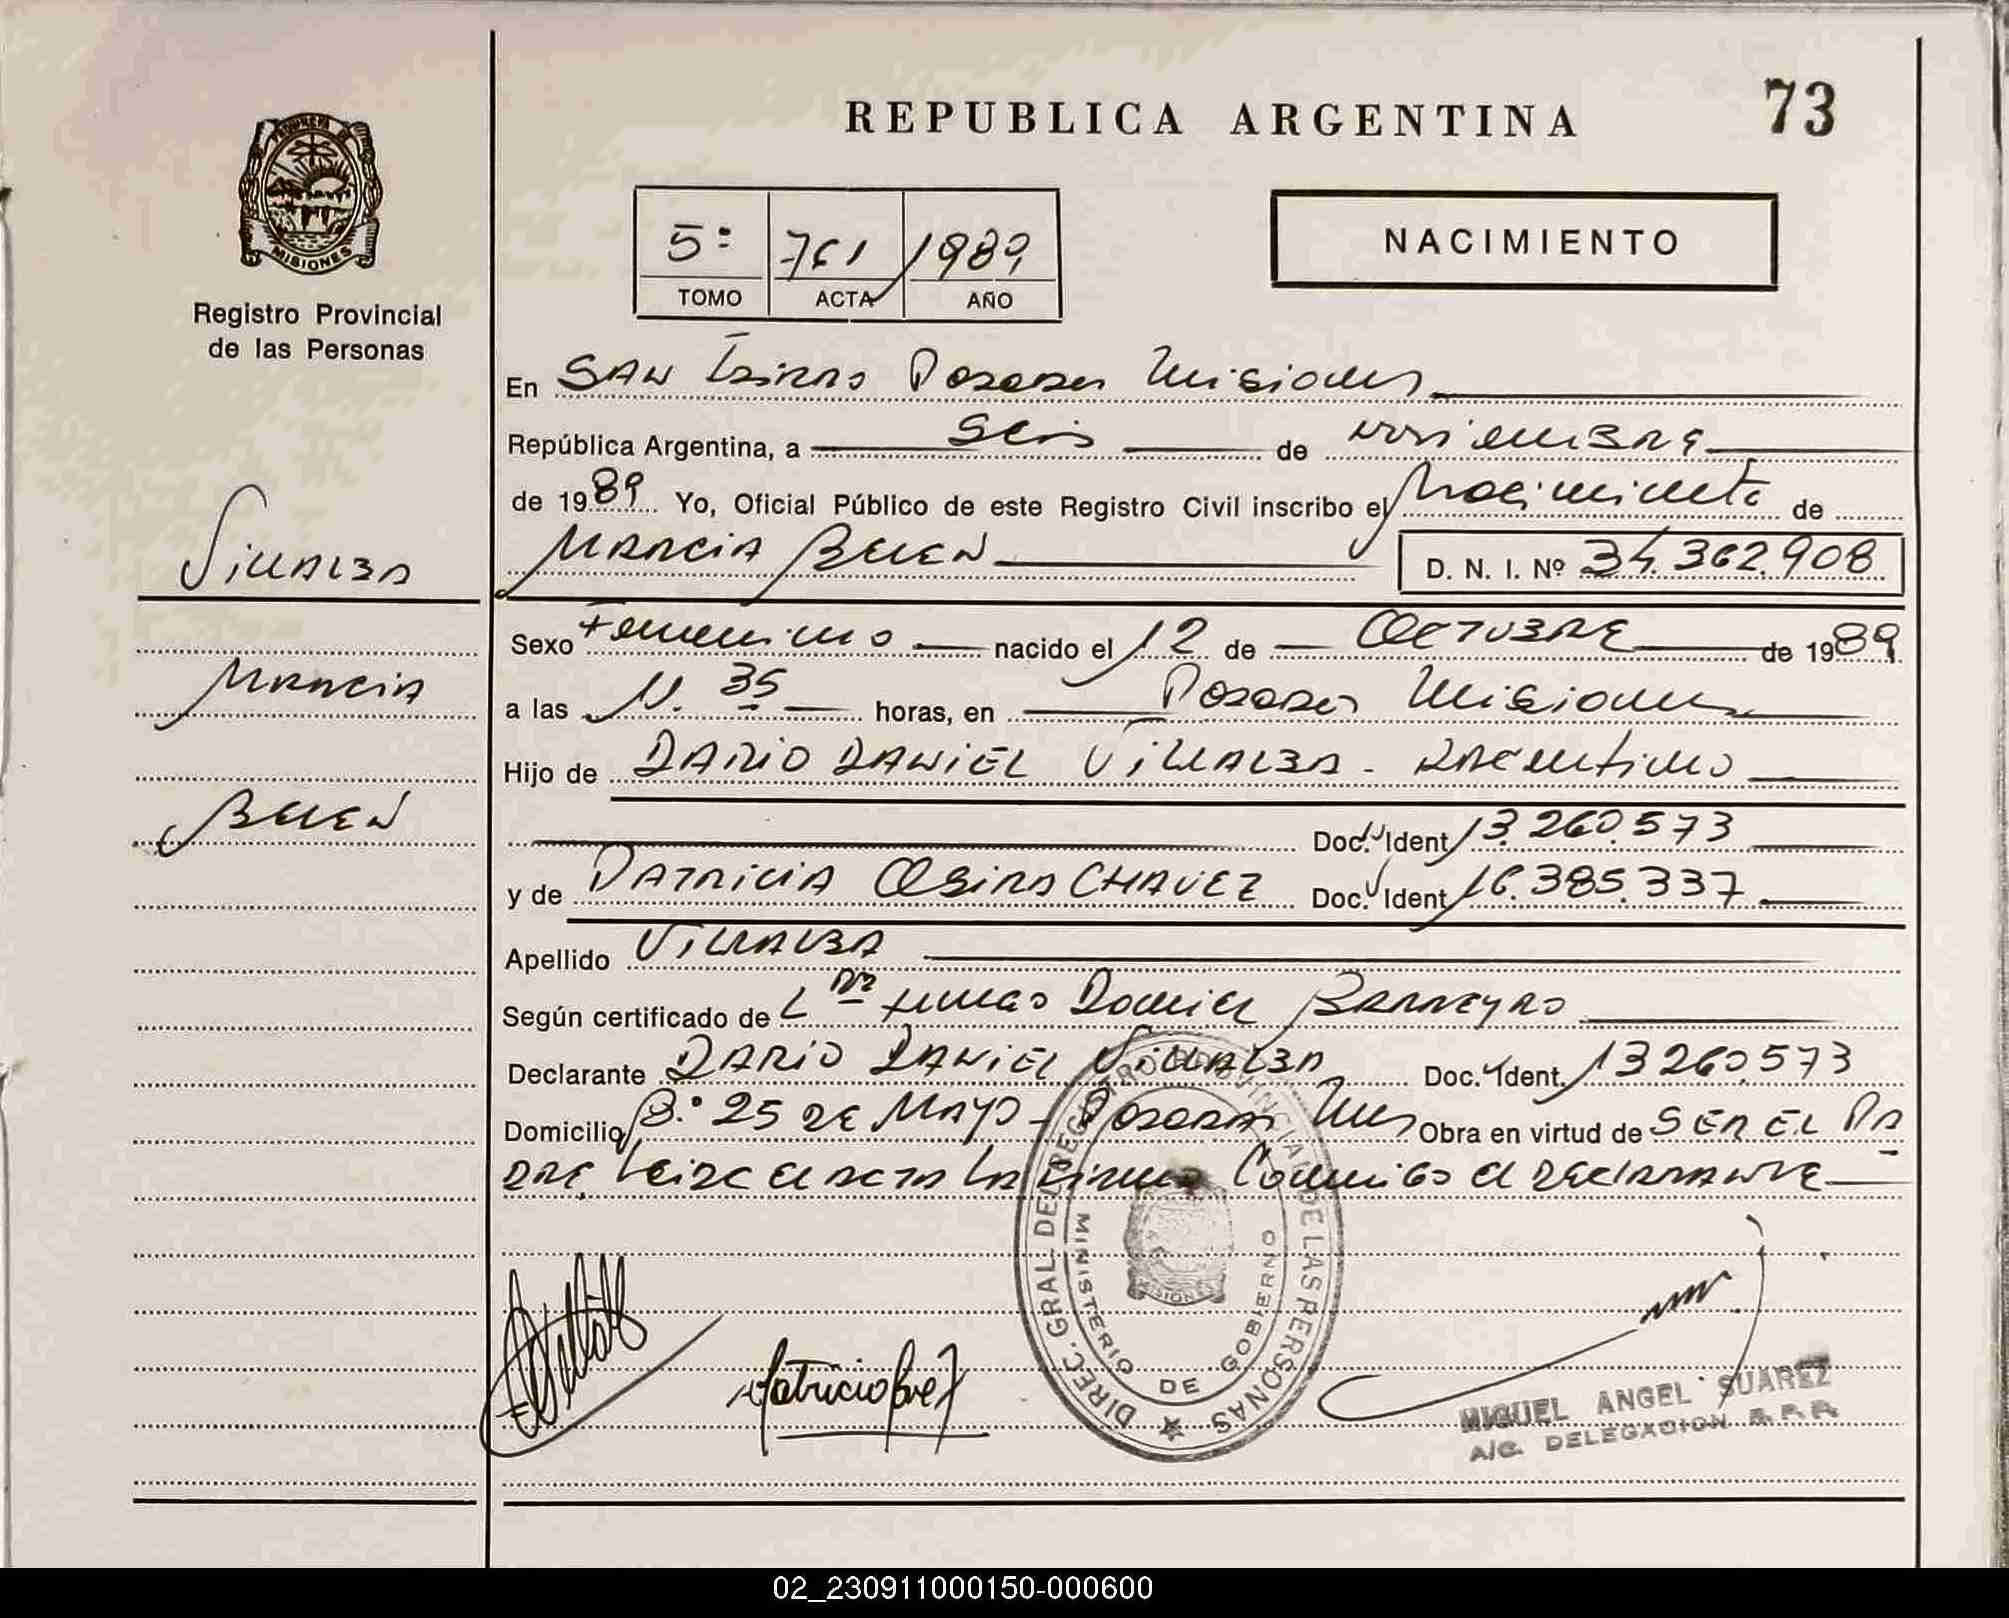 REPUBLICA ARGENTINA
73
PROVINCIA DE
MISIONES
Registro Provincial
de las Personas
5º 761 1989
TOMO ACTA AÑO
NACIMIENTO
En SAN Posadas Misiones
República Argentina, a Seis de noviembre
de 1989 Yo, Oficial Público de este Registro Civil inscribo el Nacimiento de
VILLALBA
MARCIA BELEN D. N. I. Nº 34.362.908
Sexo Femenino nacido el 12 de OCTUBRE de 1989
MARCIA
a las 11.35 horas, en Posadas Misiones
Hijo de DARIO DANIEL VILLALBA - Argentino
BELEN
Doc. Ident 13.260.573
y de PATRICIA CHAVEZ Doc. Ident 16.385.337
Apellido VILLALBA
Según certificado de Daniel BARREYRO
Declarante DARIO DANIEL VILLALBA Doc. Ident. 13260.573
Domicilio Bº 25 DE MAYO - Posadas Mnes Obra en virtud de SER EL PA
DRE, Leida el acta la firma Conmigo el DECLARANTE
DIREC. GRAL. DEL REGISTRO PROVINCIAL DE LAS PERSONAS
MINISTERIO DE GOBIERNO
MISIONES
MIGUEL ANGEL SUAREZ
A/C. DELEGACION R.P.P.
02_230911000150-000600